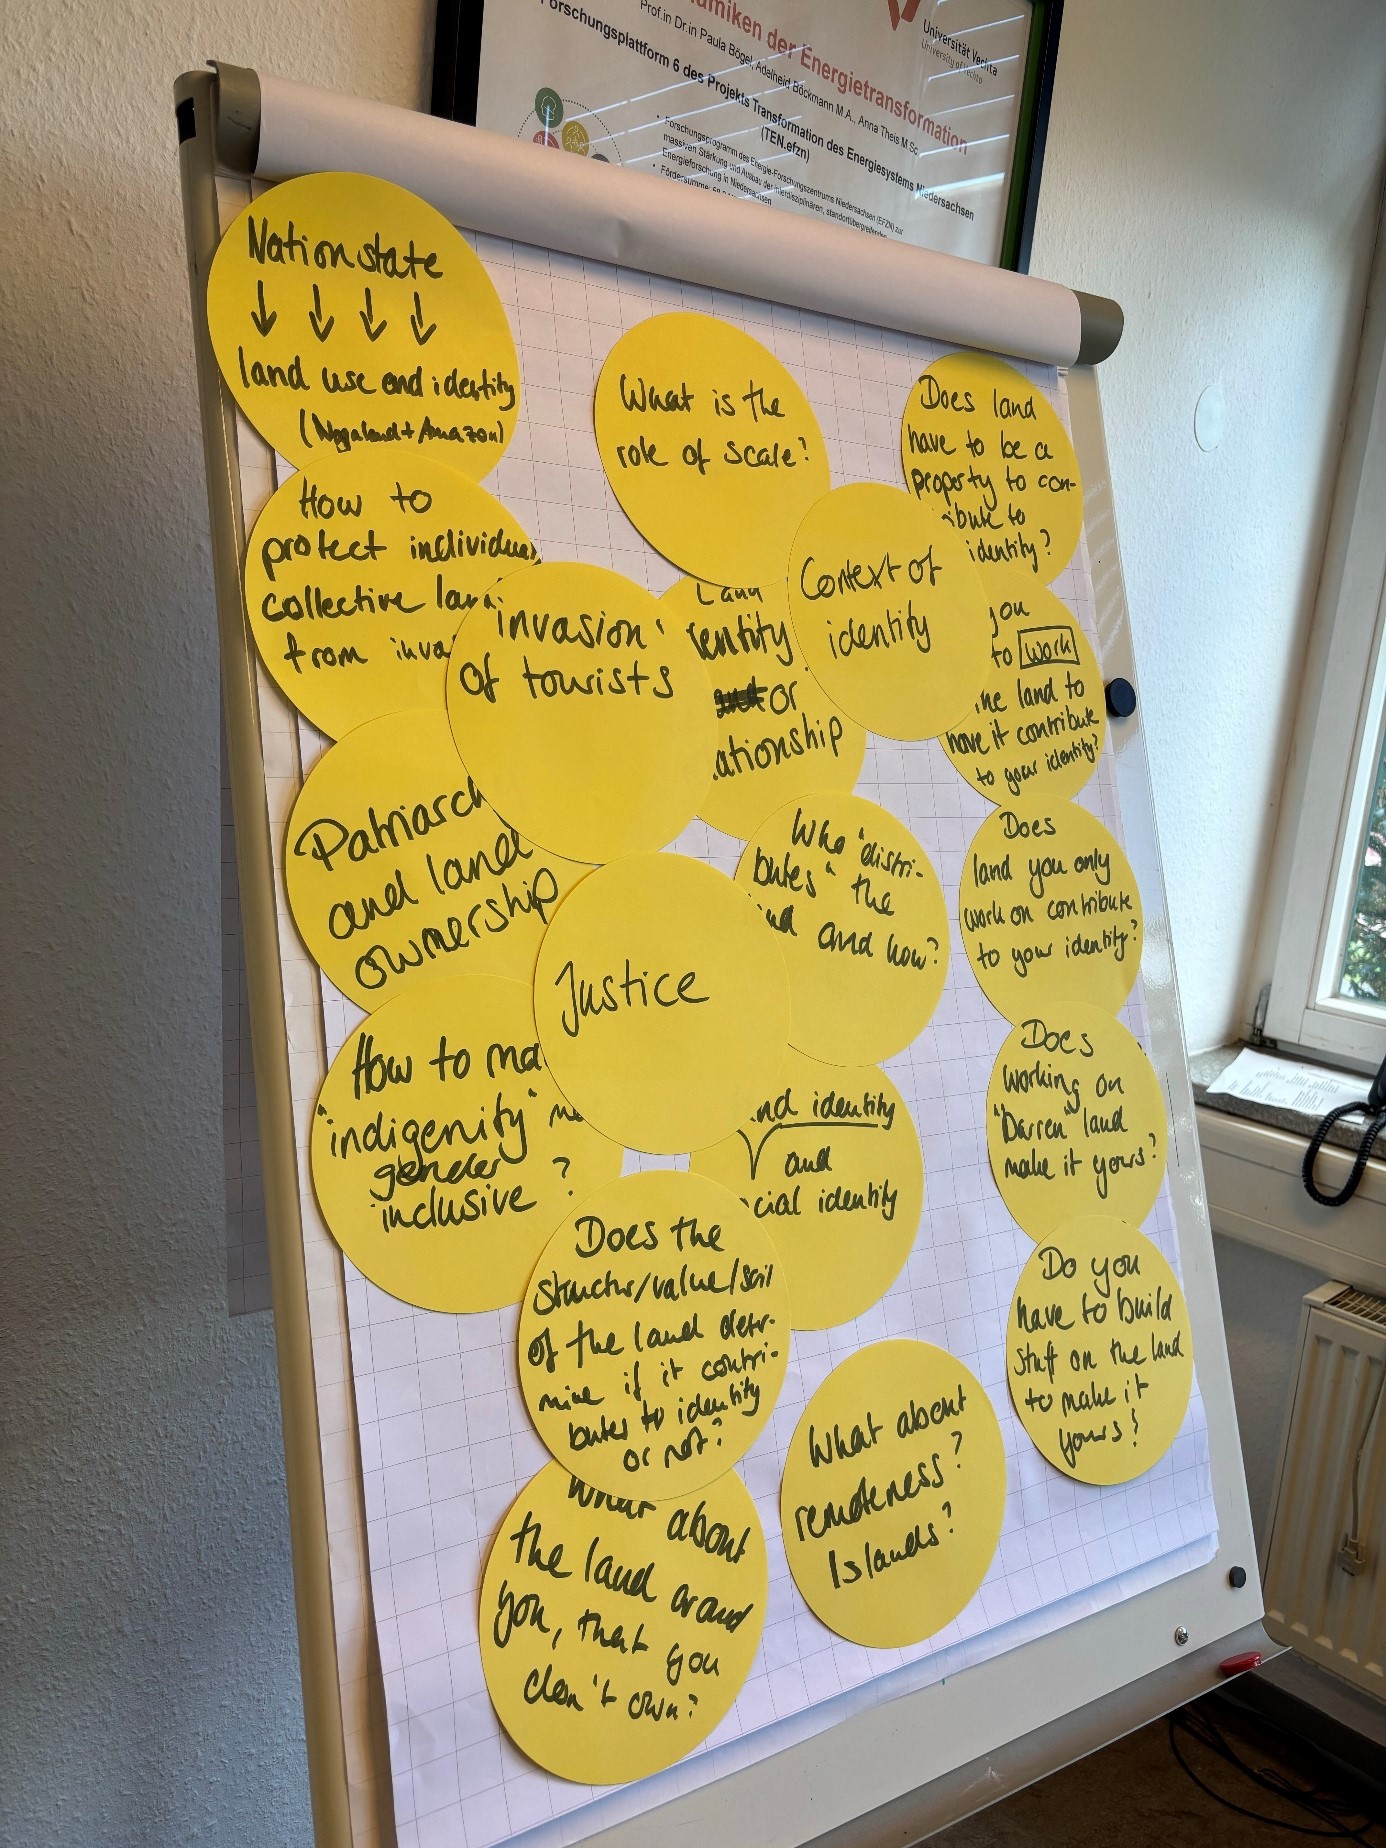 der Energietransformation
Prof.in Dr.in Paula Bögel, Adelheid Böckmann M.A., Anna Theis M.Sc.
Forschungsplattform 6 des Projekts Transformation des Energiesystems Niedersachsen
(TEN.efzn)
Forschungsprogramm des Energie-Forschungszentrums Niedersachsen (EFZN) zur
massiven Stärkung und Ausbau der interdisziplinären, standortübergreifenden
Energieforschung in Niedersachsen
Fördersumme:
Universität Vechta
University of Vechta
Nation state
↓ ↓ ↓ ↓
land use and identity
(Nagaland + Amazon)
What is the
role of scale?
Does land
have to be a
property to con-
ibute to
identity?
How to
protect individual
collective lan
from inva
invasion
of tourists
Land
entity
and or
ationship
Context of
identity
you
to work
the land to
have it contribute
to your identity?
Patriarch
and land
ownership
Who "distri-
butes" the
and how?
Does
land you only
work on contribute
to your identity?
Justice
How to ma
"indigenity"
gender
inclusive ?
nd identity
and
cial identity
Does
working on
"barren" land
make it yours?
Does the
structur/value/soil
of the land deter-
mine if it contri-
butes to identity
or not?
Do you
have to build
stuff on the land
to make it
yours?
What about
remoteness?
Islands?
What about
the land around
you, that you
don't own?